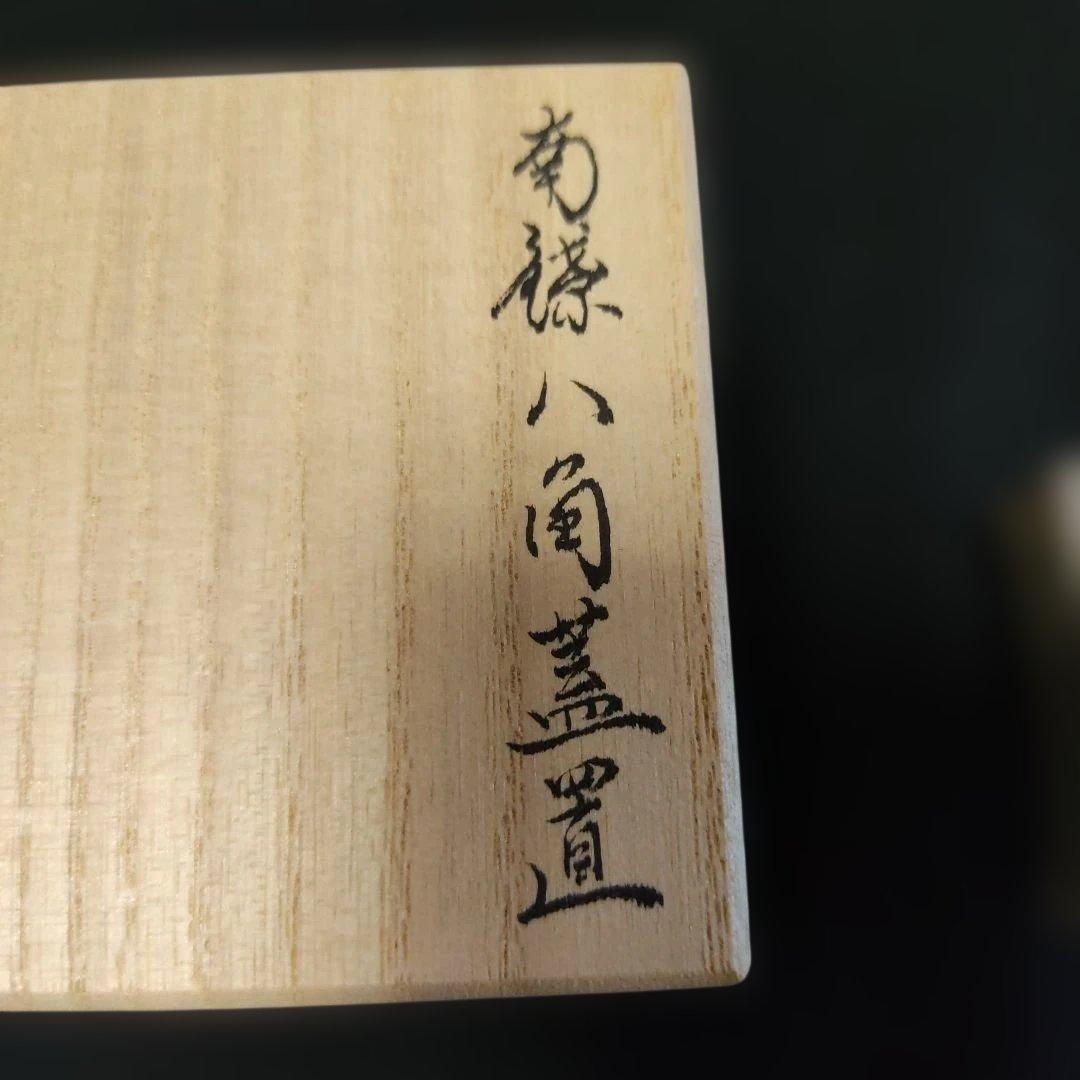 南鐐八角蓋置